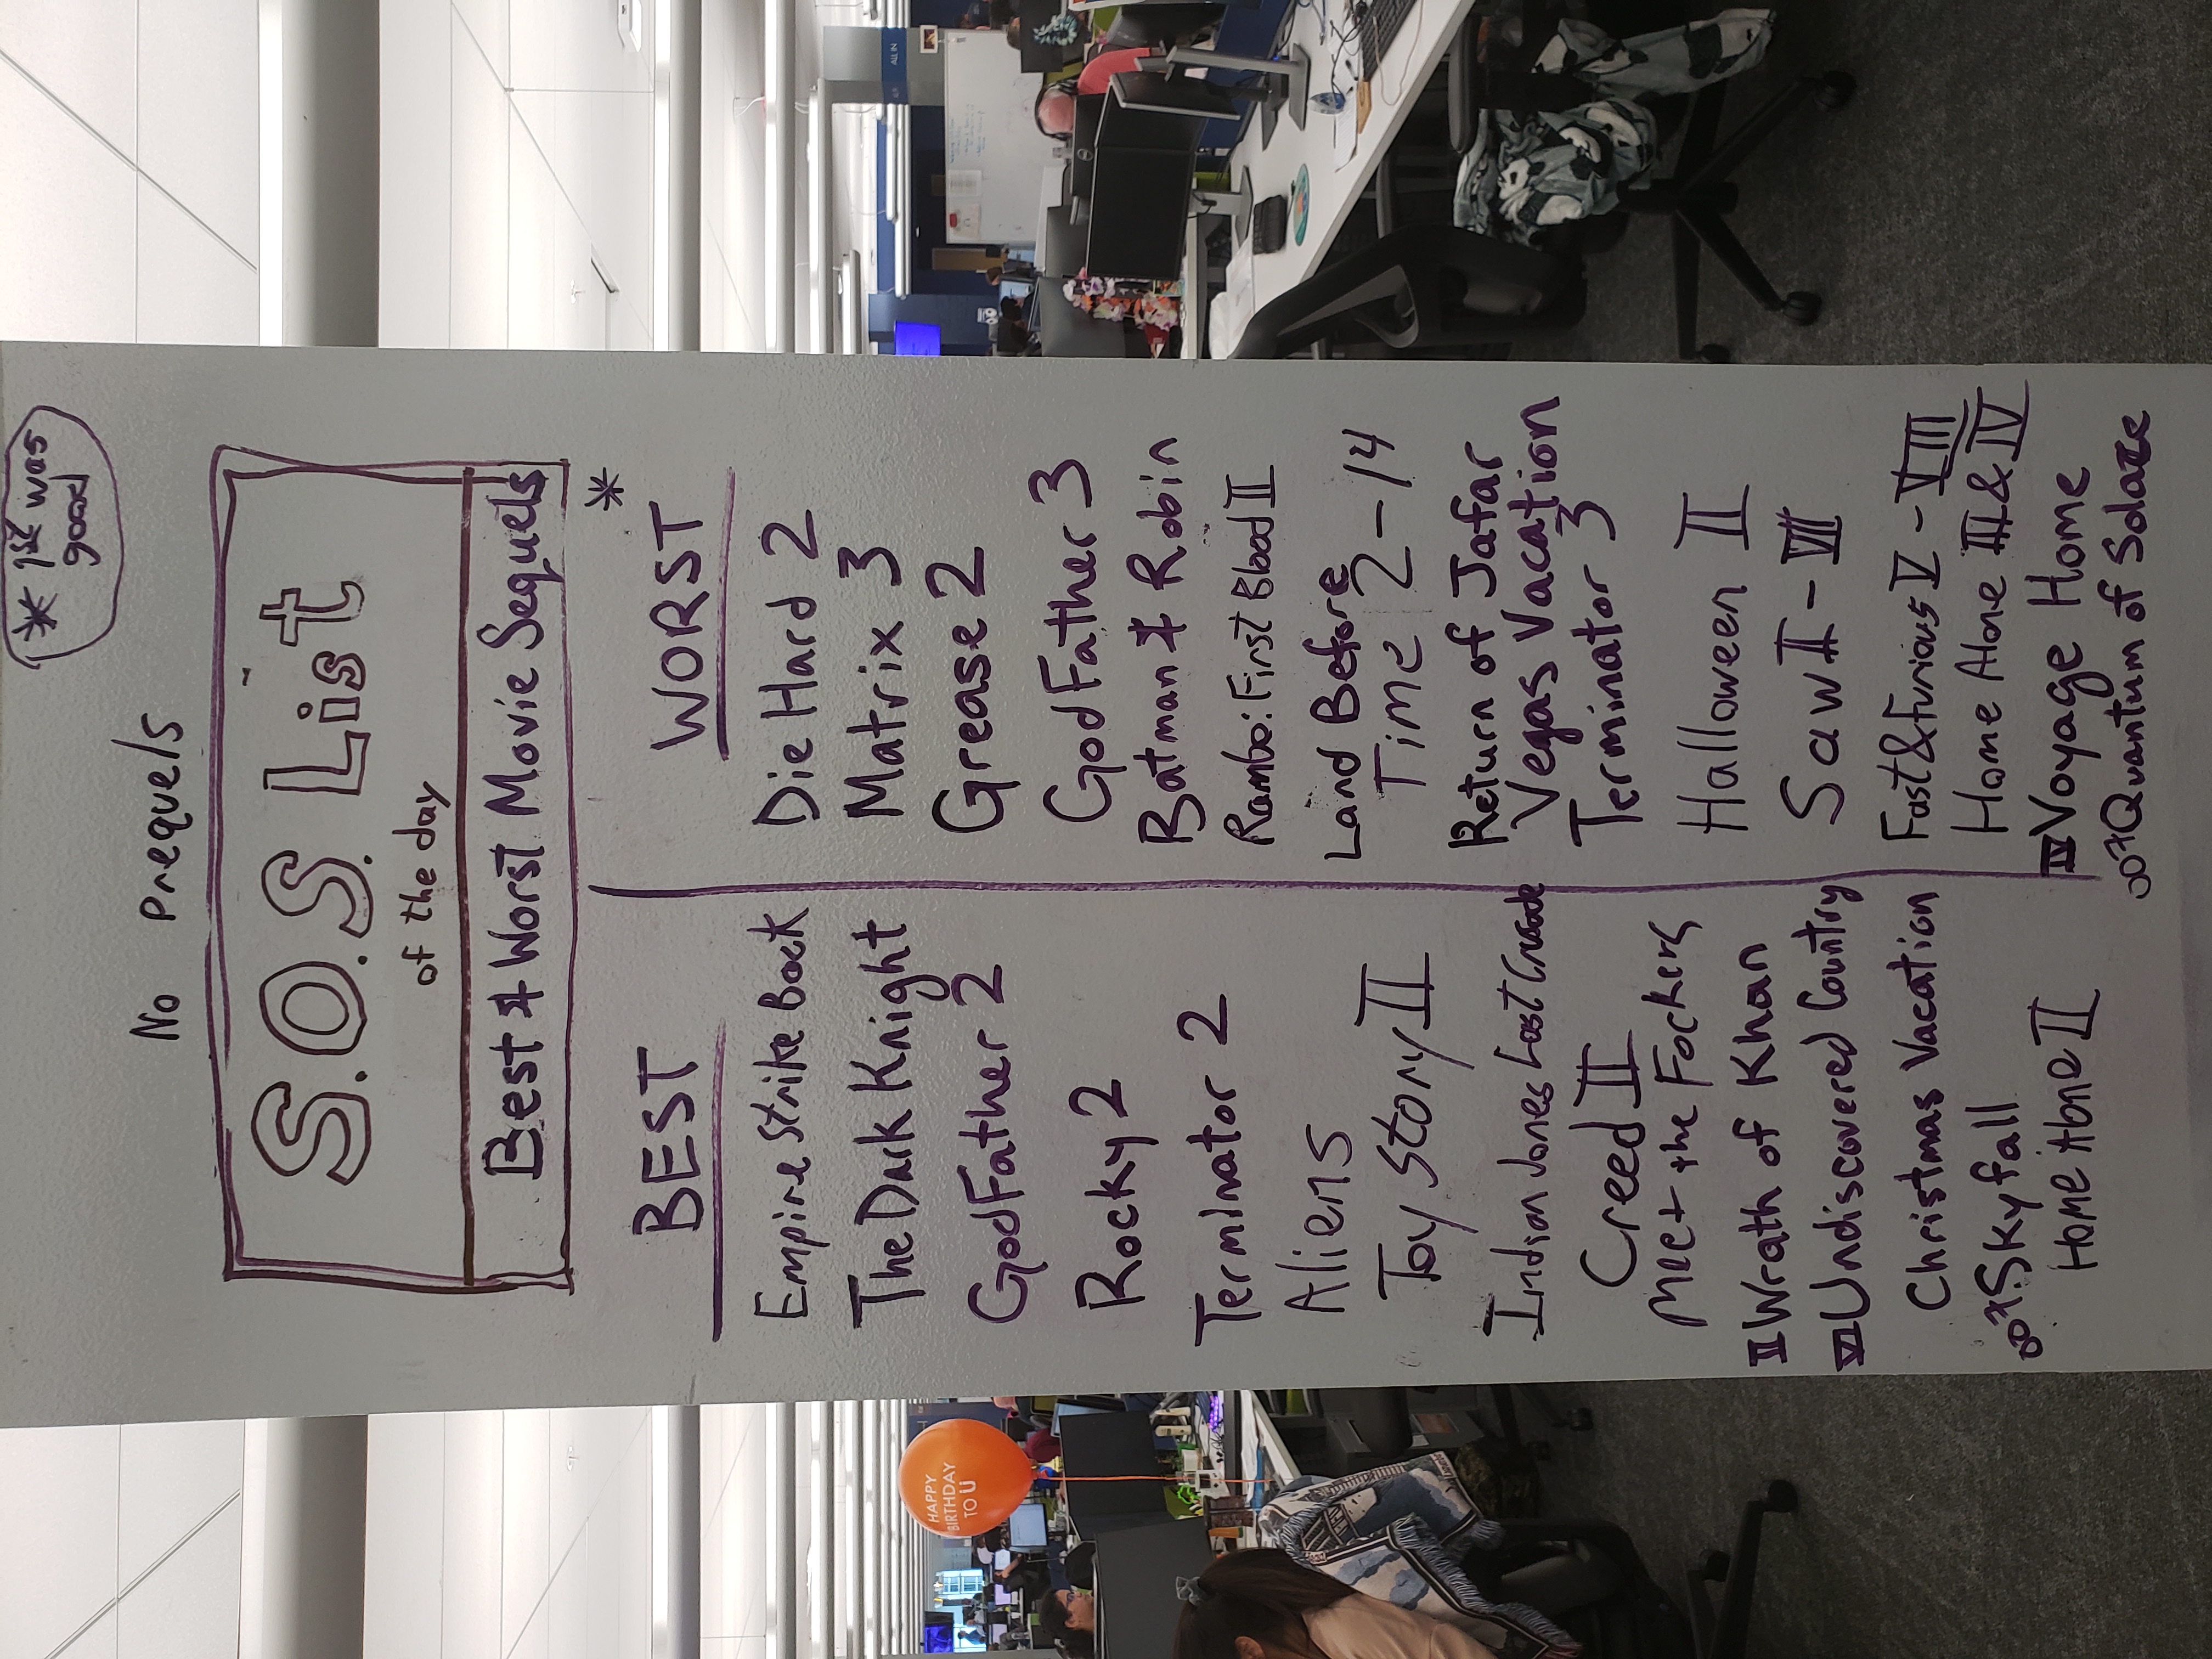 * 1st was
good
No Prequels
S.O.S. List
of the day
Best & Worst Movie Sequels
*
BEST
Empire Strike Back
The Dark Knight
GodFather 2
Rocky 2
Terminator 2
Aliens
Toy Story II
Indian Jones Last Crusade
Creed II
Meet the Fockers
II Wrath of Khan
VI Undiscovered Country
Christmas Vacation
007: Skyfall
Home Alone II
WORST
Die Hard 2
Matrix 3
Grease 2
GodFather 3
Batman & Robin
Rambo: First Blood II
Land Before
Time 2-14
Return of Jafar
Vegas Vacation
Terminator 3
Halloween II
Saw II - VII
Fast & Furious V - VIII
Home Alone III & IV
IV Voyage Home
007 Quantum of Solace
HAPPY
BIRTHDAY
TO U
ALL IN